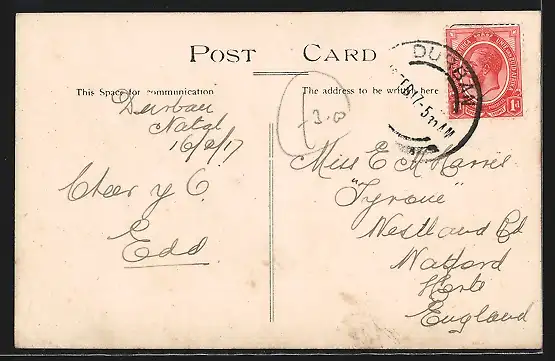 POST CARD
This Space for communication
The address to be written here
Durban
Natal
16/2/17
Cheer y O.
Edd
3.0
Miss E M Harris
"Tyrone"
Westland Rd
Watford
Herts
England
DURBAN
FE 17·5
AM
1d